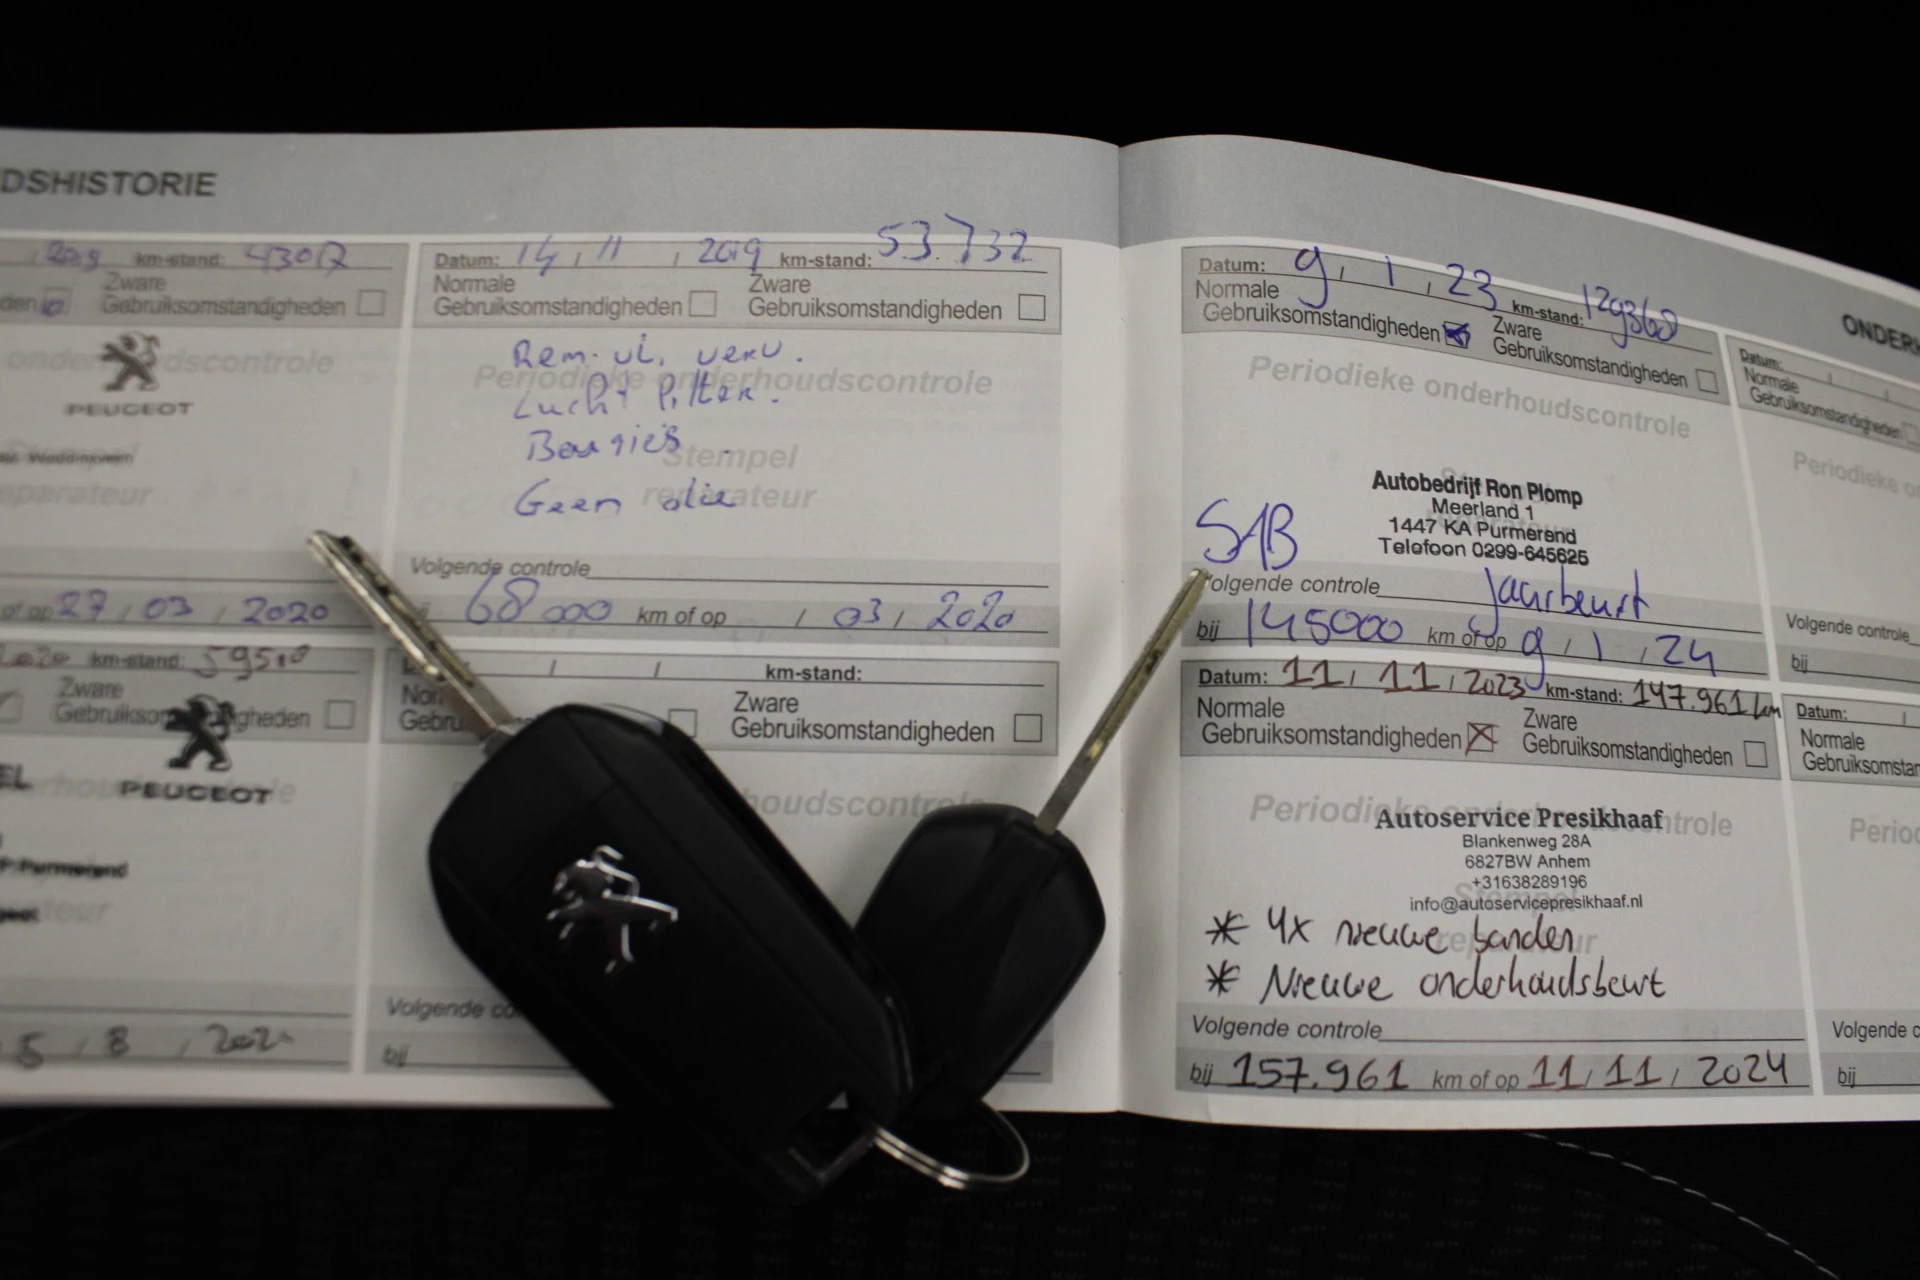 DSHISTORIE
2019 km-stand: 43017
Zware
den Gebruiksomstandigheden
onderhoudscontrole
PEUGEOT
Stempel
reparateur
of op 27 / 03 / 2020
2020 km-stand:
Zware
Gebruiksomstandigheden
PEUGEOT
Purmerend
5 / 8 /
Datum: 14 / 11 / 2019 km-stand: 53.732
Normale Zware
Gebruiksomstandigheden Gebruiksomstandigheden
Rem. vl. verv.
Periodieke onderhoudscontrole
Lucht filter.
Bougies
Stempel
Geen olie
reparateur
Volgende controle
bij 68000 km of op / 03 / 2020
km-stand:
Zware
Gebruiksomstandigheden
houdscontrole
Volgende co
bij
Datum: 9 / 1 / 23 km-stand: 129368
Normale Zware
Gebruiksomstandigheden Gebruiksomstandigheden
Periodieke onderhoudscontrole
Autobedrijf Ron Plomp
Meerland 1
1447 KA Purmerend
Telefoon 0299-645625
SAB
Volgende controle Jaarbeurt
bij 145000 km of op 9 / 1 / 24
Datum: 11 / 11 / 2023 km-stand: 147.961 km
Normale Zware
Gebruiksomstandigheden Gebruiksomstandigheden
Periodieke onderhoudscontrole
Autoservice Presikhaaf
Blankenweg 28A
6827BW Arnhem
+31638289196
Stempel
info@autoservicepresikhaaf.nl
* 4x nieuwe banden
reparateur
* Nieuwe onderhoudsbeurt
Volgende controle
bij 157.961 km of op 11 / 11 / 2024
ONDERH
Datum:
Normale
Gebruiksomstandigheden
Periodieke on
Volgende controle
bij
Datum:
Normale
Gebruiksomstan
Period
Volgende c
bij